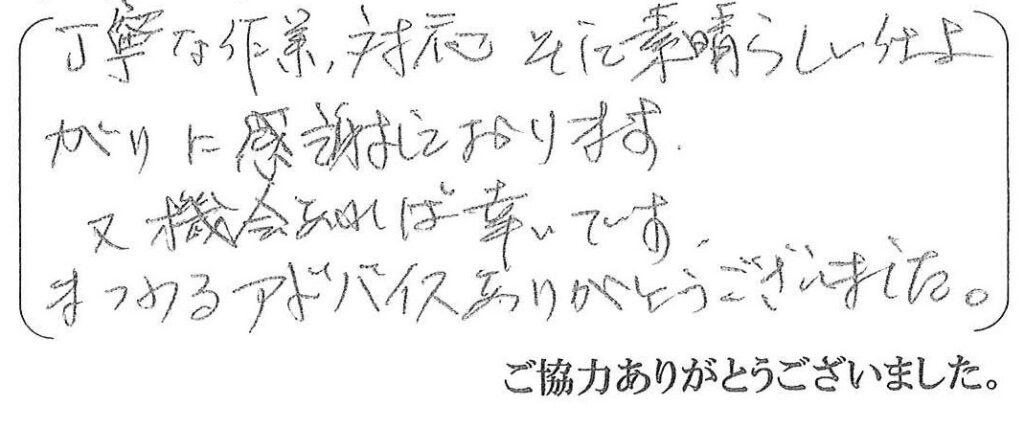 丁寧な作業,対応 そに素晴らしい仕上
がりに感謝しております.
又機会あれば幸いです
まつわるアドバイスありがとうございました。
ご協力ありがとうございました。